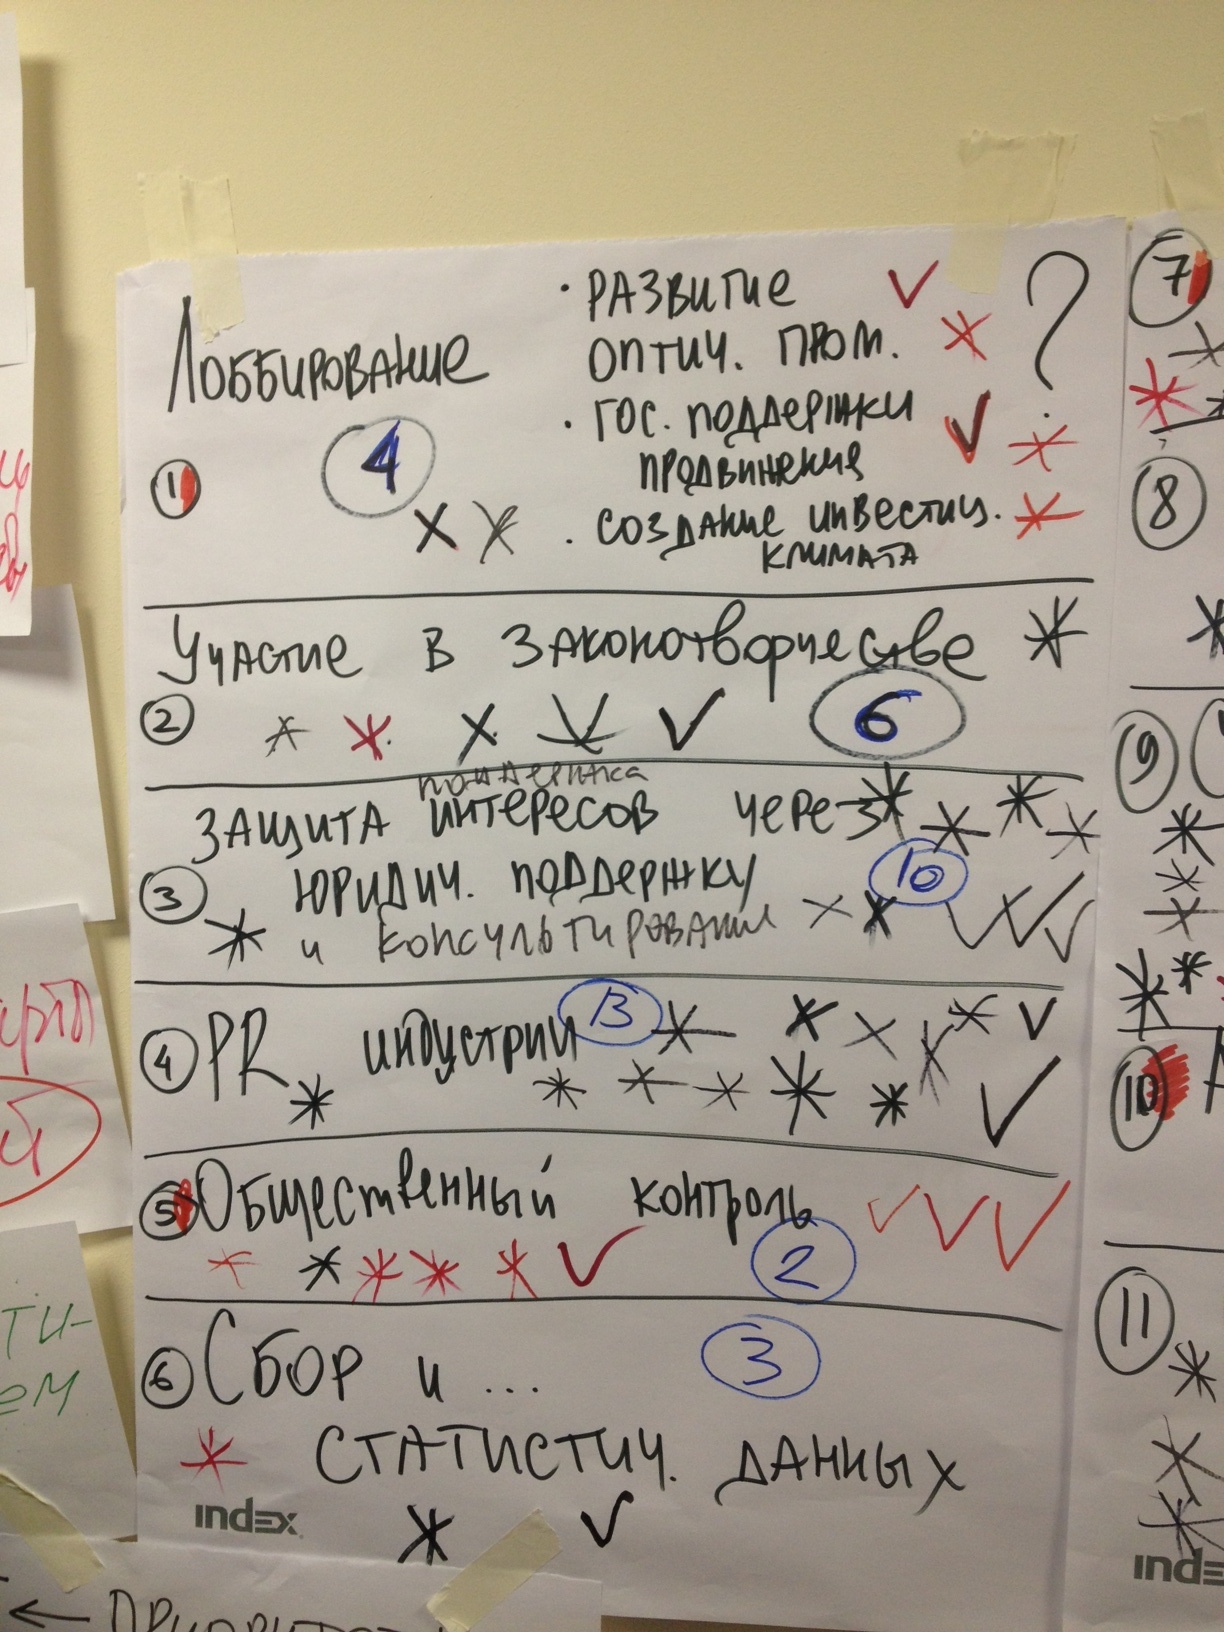 Лоббирование
• РАЗВИТИЕ
ОПТИЧ. ПРОМ.
?
• ГОС. ПОДДЕРЖКИ
ПРОДВИЖЕНИЯ
• СОЗДАНИЕ ИНВЕСТИЦ.
КЛИМАТА
1
4
Участие в Законотворчестве
2
6
поддержка
ЗАЩИТА ИНТЕРЕСОВ ЧЕРЕЗ
3
ЮРИДИЧ. ПОДДЕРЖКУ
10
и КОНСУЛЬТИРОВАНИЕ
4 PR индустрии
13
5 Общественный контроль
2
6 Сбор и ...
3
СТАТИСТИЧ. ДАННЫХ
index
7
8
9
10
11
inde
ТИ-
ем
←